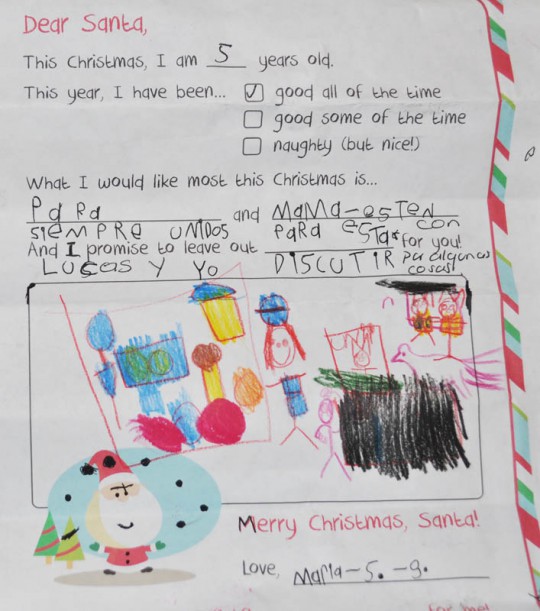 Dear Santa,
This Christmas, I am 5 years old.
This year, I have been... ☑ good all of the time
☐ good some of the time
☐ naughty (but nice!)
What I would like most this Christmas is...
PaRa and MaMa-esTen
SIEMPRE UNIDOS PaRa ESTaR con
And I promise to leave out for you!
LUcas Y Yo DISCUTIR algunas
cosas!
Merry Christmas, Santa!
Love, MaRIa-5.-9.